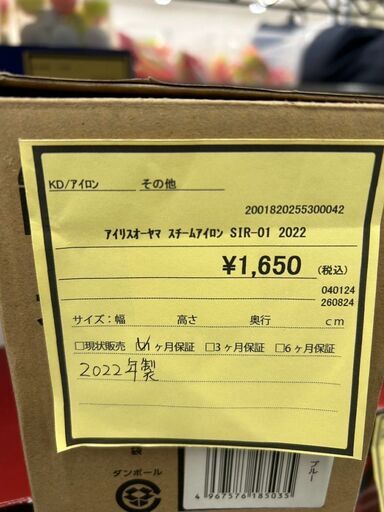 KD/アイロン その他
2001820255300042
アイリスオーヤマ スチームアイロン SIR-01 2022
¥1,650 (税込)
040124
260824
サイズ:幅 高さ 奥行 cm
□現状販売 ☑1ヶ月保証 □3ヶ月保証 □6ヶ月保証
2022年製
袋
ダンボール
ブルー
4 967576 185035